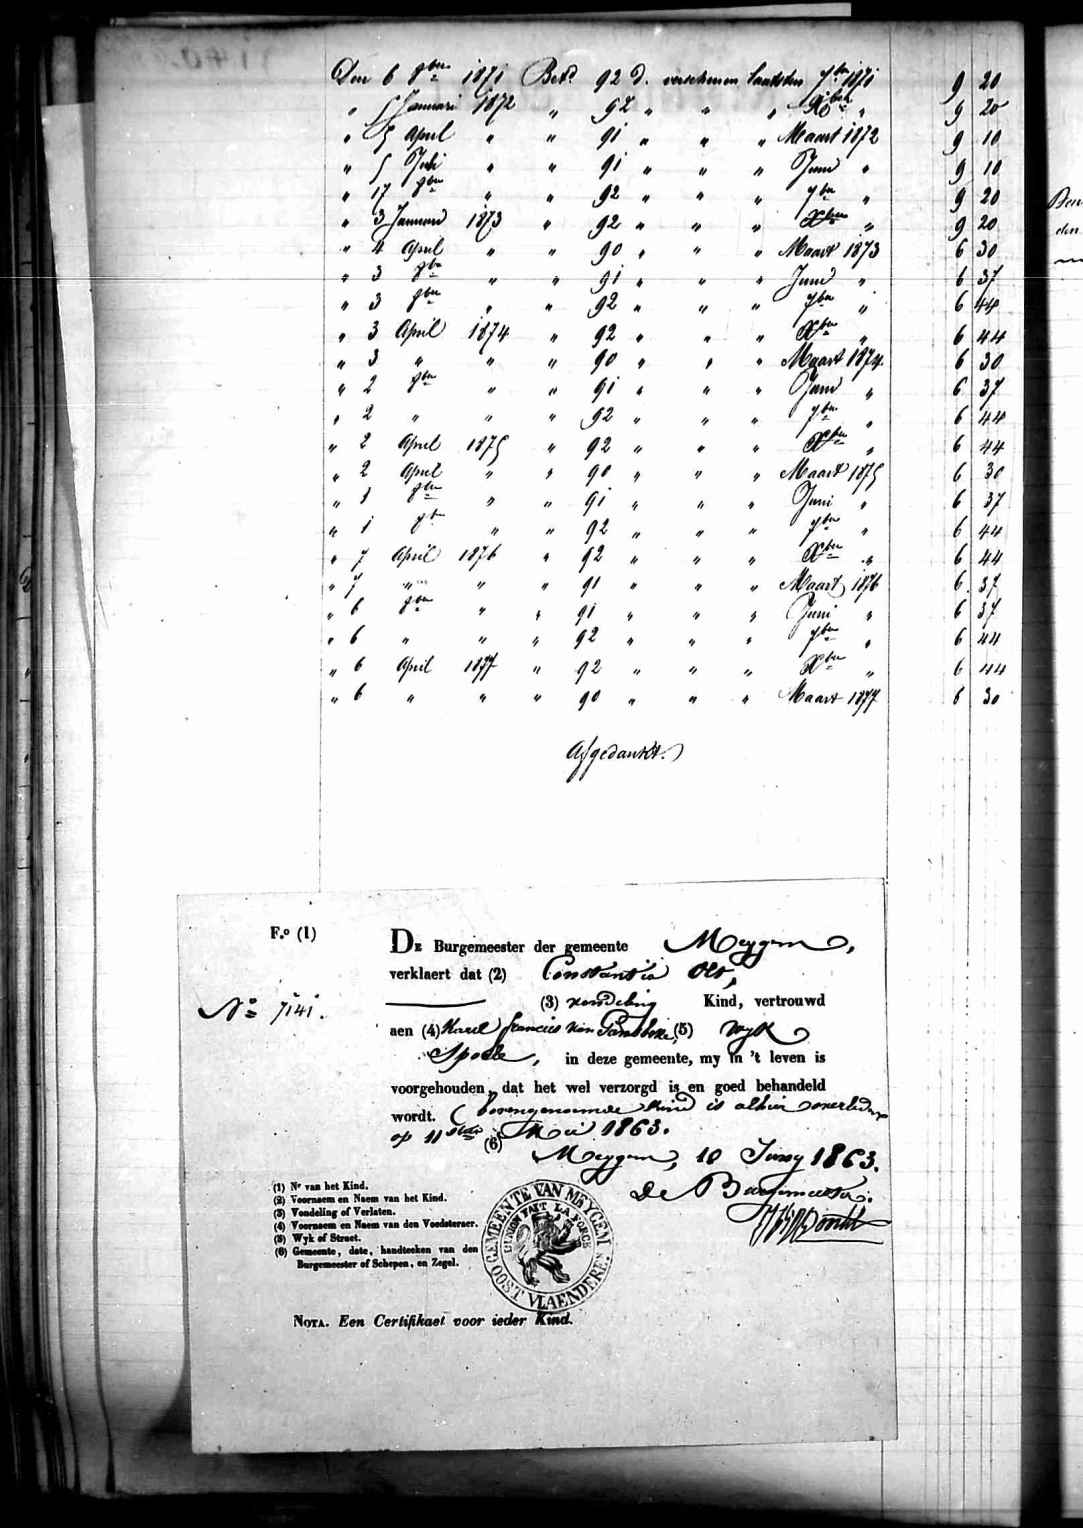 Den 6 8ber 1871 Betd 92 d. verschenen laatsten 7ber 1871 9 20
" 5 Januari 1872 " 92 " " " Xber " 9 20
" 5 April " " 91 " " " Maart 1872 9 10
" 5 Juli " " 91 " " " Juni " 9 10
" 17 8ber " " 92 " " " 7ber " 9 20
" 3 Januari 1873 " 92 " " " Xber " 9 20
" 4 April " " 90 " " " Maart 1873 6 30
" 3 8ber " " 91 " " " Juni " 6 37
" 3 8ber " " 92 " " " 7ber " 6 44
" 3 April 1874 " 92 " " " Xber " 6 44
" 3 " " " 90 " " " Maart 1874. 6 30
" 2 8ber " " 91 " " " Juni " 6 37
" 2 " " " 92 " " " 7ber " 6 44
" 2 April 1875 " 92 " " " Xber " 6 44
" 2 April " " 90 " " " Maart 1875 6 30
" 1 8ber " " 91 " " " Juni " 6 37
" 1 8ber " " 92 " " " 7ber " 6 44
" 7 April 1876 " 92 " " " Xber " 6 44
" 7 " " " 91 " " " Maart 1876 6 37
" 6 8ber " " 91 " " " Juni " 6 37
" 6 " " " 92 " " " 7ber " 6 44
" 6 April 1877 " 92 " " " Xber " 6 44
" 6 " " " 90 " " " Maart 1877 6 30
Afgedankt.
F.o (1)
De Burgemeester der gemeente Meygem,
verklaert dat (2) Constantia
No 7141.
(3) vondeling Kind, vertrouwd
aen (4) Karel francies Van (5) wyk
in deze gemeente, my in 't leven is
voorgehouden, dat het wel verzorgd is en goed behandeld
wordt. (bovengenoemde kind is alhier overleden
op 11 Mei 1863.
(6) Meygem, 10 Juny 1863.
De Burgemeester.
(1) Nr van het Kind.
(2) Voornaem en Naem van het Kind.
(3) Vondeling of Verlaten.
(4) Voornaem en Naem van den Voedsteraer.
(5) Wyk of Straet.
(6) Gemeente, date, handteeken van den
Burgemeester of Schepen, en Zegel.
GEMEENTE VAN MEYGEM
L'UNION FAIT LA FORCE
OOST VLAENDEREN
Nota. Een Certifikaet voor ieder Kind.